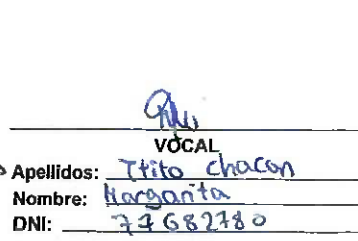 VOCAL
Apellidos: Ttito chacon
Nombre: Margarita
DNI: 77682780